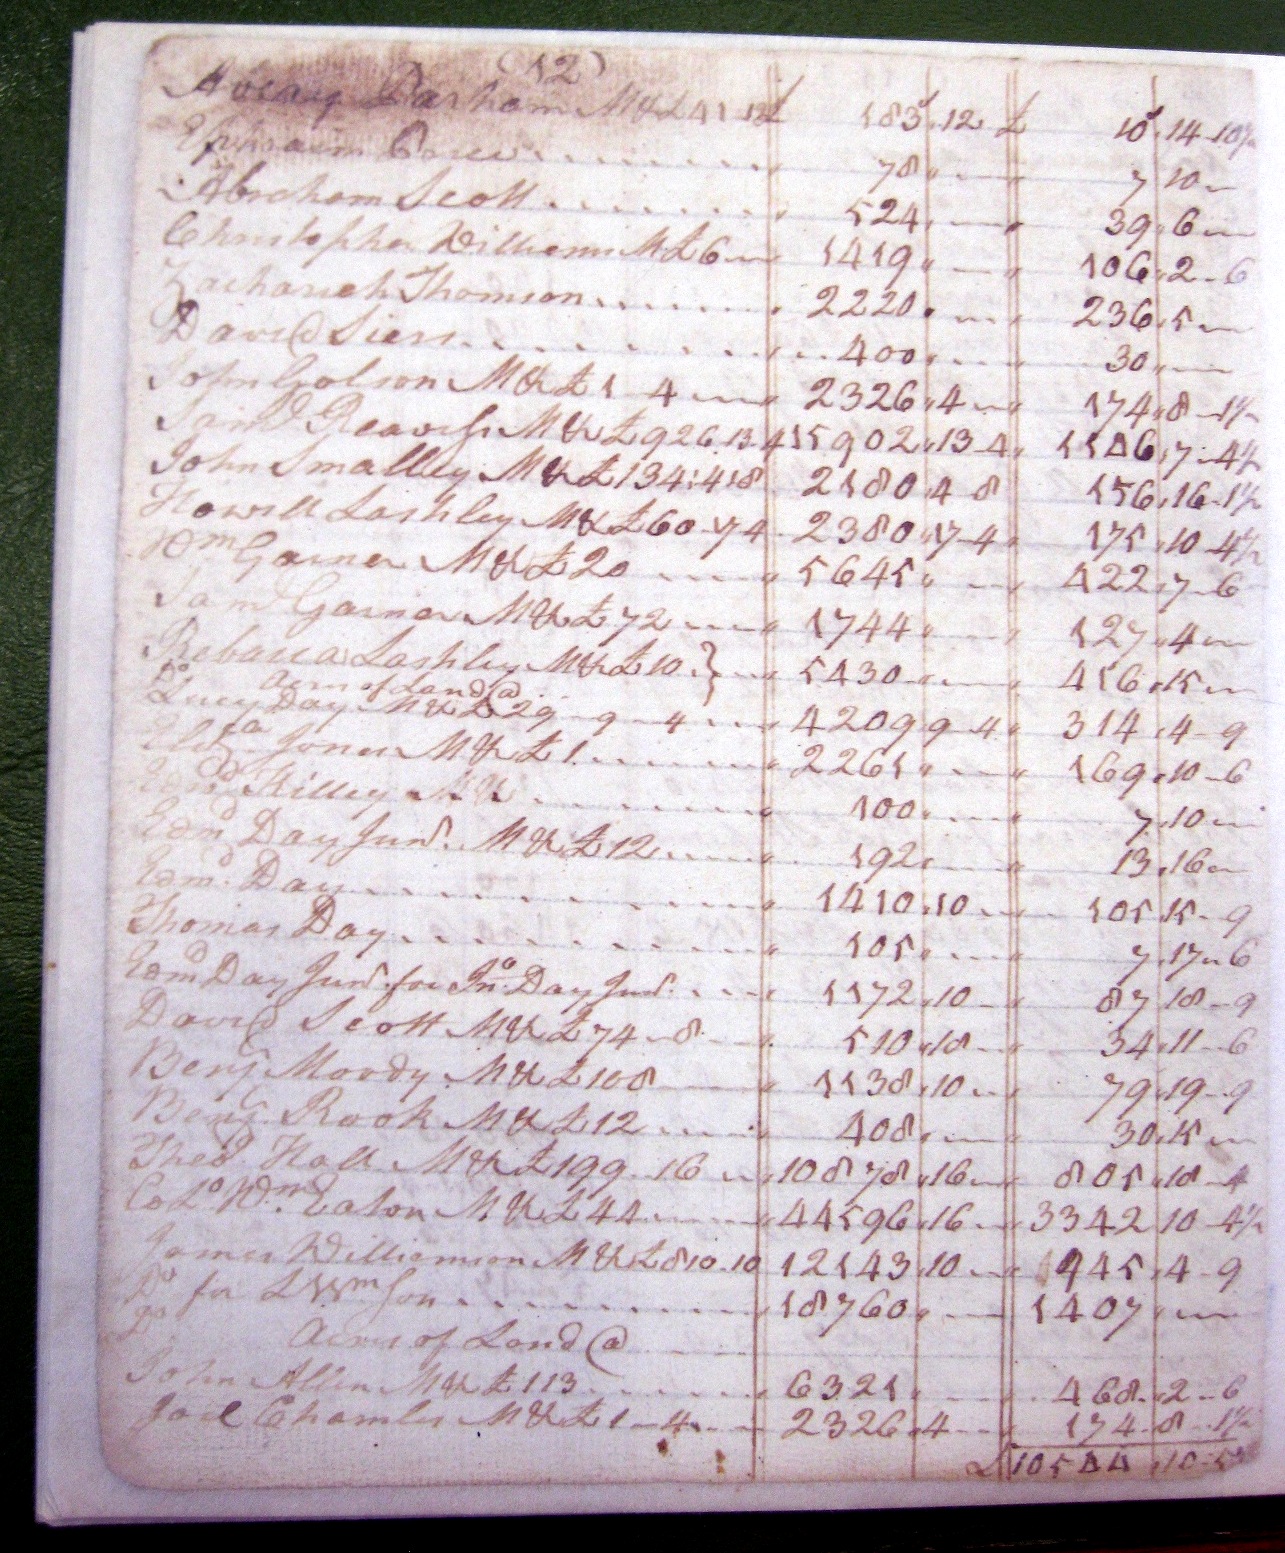 (12)
Avery Parham M & £ 41 12 £ 183 . 12 £ 10 . 14 - 10½
Ephraim 78 " 7 10
Abraham Scott 524 " 39 " 6
Christopher Williams M £ 6 1419 " 106 " 2 - 6
Zachariah Thomson 2220 236 " 5
David Siers 400 " 30 "
John Golson M & £ 1 4 2326 " 4 174 " 8 - 1½
Saml Reaves M & £ 926 . 13 . 4 15902 " 13 - 4 1146 " 7 - 4½
John Smalley M & £ 134 : 4 : 8 2180 " 4 8 156 " 16 - 1½
Howell Lashley M & £ 60 - 17 4 2380 " 17 - 4 175 " 10 - 4½
Wm Garner M & £ 20 5645 " 422 " 7 - 6
Saml Garner M & £ 72 1744 " 127 " 4
Rebacca Lashley M & £ 10 } 5430 " 416 " 15
Do Acres of Land @
Lucy Day M & £ 29 - 9 - 4 4209 9 - 4 314 " 4 - 9
Eliza Jones M & £ 1 2261 " 169 " 10 - 6
Edmd Killey M & 100 " 7 " 10
Edmd Day Junr. M & £ 12 192 " 13 " 16
Edmd. Day 1410 " 10 105 " 15 - 9
Thomas Day 105 " 7 " 17 " 6
Edmd Day Junr. for Jno. Day Junr. 1172 " 10 87 " 18 - 9
David Scott M & £ 74 - 8 510 " 18 34 " 11 - 6
Benj Moody M & £ 108 1138 " 10 79 " 19 - 9
Benj. Rook M & £ 12 408 " 30 " 15
Theo. Hall M & £ 199 - 16 10878 " 16 805 " 18 - 4
Colo. Wm. Eaton M & £ 44 44596 " 16 3342 " 10 - 4½
James Williamson M & £ 810 . 10 12143 " 10 945 " 4 - 9
Do for L Wmson 18760 " 1407 "
Do Acres of Land @
John Allen M & £ 113 6321 " 468 " 2 - 6
Joel Chamles M & £ 1 - 4 2326 " 4 174 - 8 - 1½
£ 10544 " 10 - 5